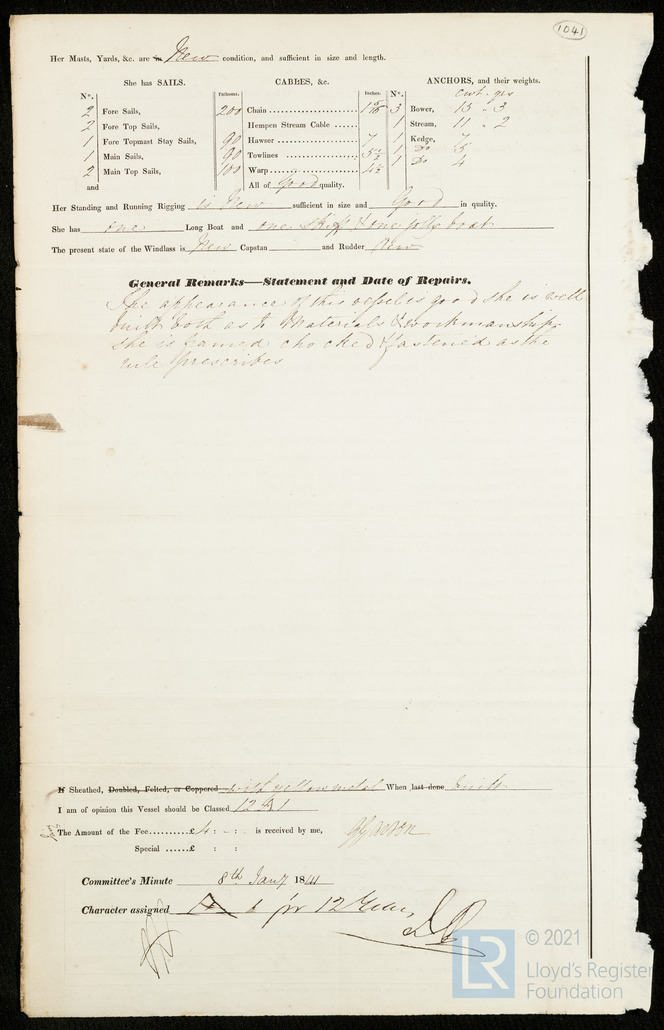 1041
Her Masts, Yards, &c. are in New condition, and sufficient in size and length.
She has SAILS. CABLES, &c. ANCHORS, and their weights.
Nº. Fathoms. Inches. Nº. cwt. qrs
2 Fore Sails, 200 Chain 3 Bower, 13 - 3
2 Fore Top Sails, Hempen Stream Cable 1 Stream, 11 - 2
1 Fore Topmast Stay Sails, 90 Hawser 7 1 Kedge, 7
1 Main Sails, 90 Towlines 1 Do 5
2 Main Top Sails, 100 Warp 1 Do 4
and All of Good quality.
Her Standing and Running Rigging is New sufficient in size and Good in quality.
She has one Long Boat and one Skiff & one jolly boat
The present state of the Windlass is New Capstan and Rudder New
General Remarks—Statement and Date of Repairs.
The appearance of this vessel is good she is well
built both as to Materials & workmanship,
she is framed chocked & fastened as the
rule prescribes
If Sheathed, Doubled, Felted, or Coppered with yellow metal When last done built
I am of opinion this Vessel should be Classed 12 A 1
The Amount of the Fee..........£ 4 : - : - is received by me,
Special ......£ : :
Committee's Minute 8th Jany 1841
Character assigned A 1 for 12 Years
LR
© 2021
Lloyd's Register
Foundation